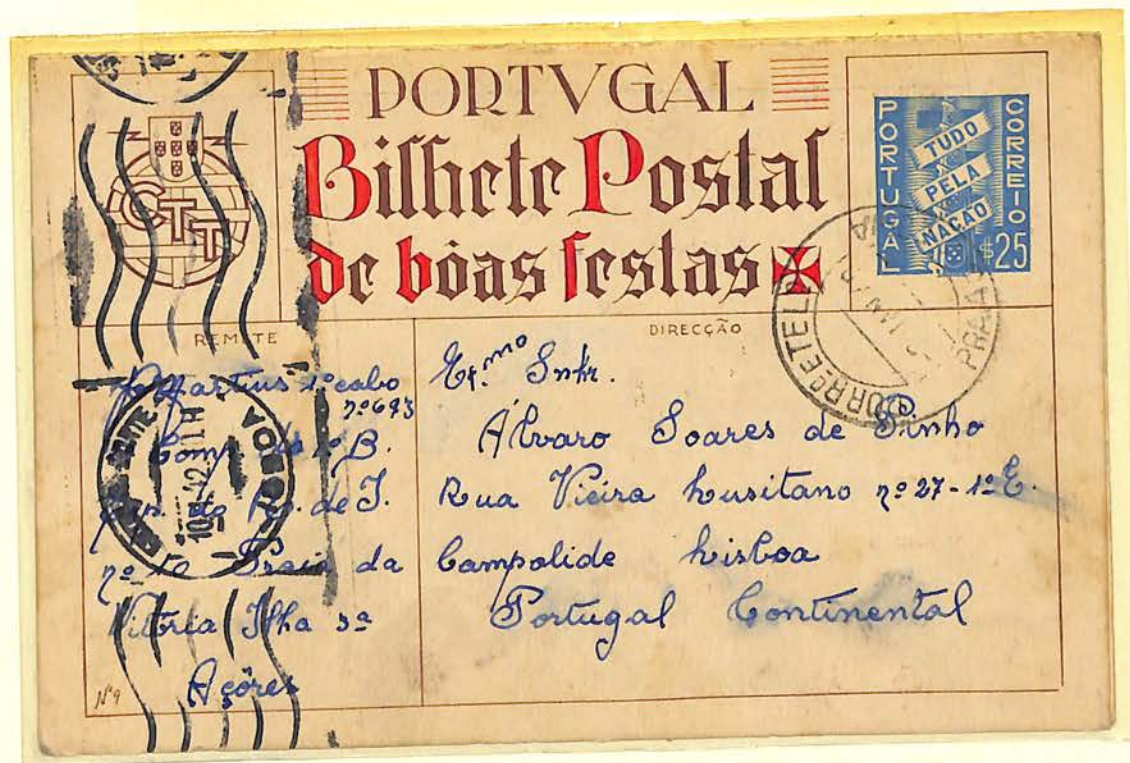 PORTVGAL
Bilhete Postal
de bôas festas
CTT
PORTUGAL
CORREIO
TUDO
PELA
NAÇÃO
$25
REMETE
DIRECÇÃO
Martins 1º cabo
nº 693
Comp. do 1º B.
do Reg. de I.
nº 10 Praia da
Vitória Ilha 3ª
Açôres
Nº 9
Exmo Snhr.
Álvaro Soares de Pinho
Rua Vieira Lusitano nº 27-1º E.
Campolide Lisboa
Portugal Continental
LISBOA
CORRº E TEL
PRAIA